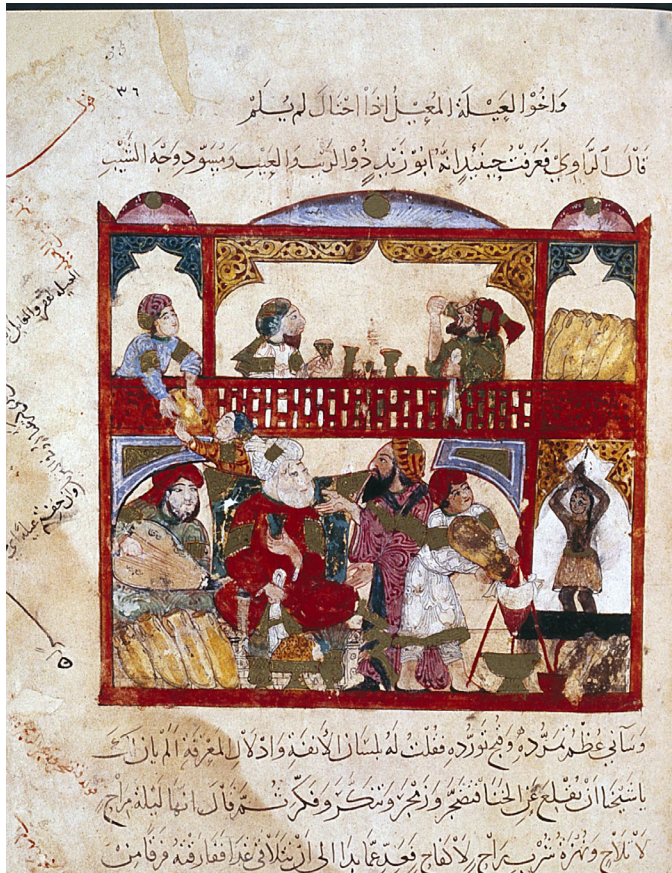 ٣٦
وَاخُوْا العَيْلَةِ المُعِيْلُ اِذَا احْتَالَ لَم يُلَمْ
قَالَ اَلرَّاوِيْ فَعَرَفْتُ حِيْنَئِذٍ اَنَّهُ اَبُوْ زَيْدٍ ذُوْ الرَّيْبِ وَالعَيْبِ وَمُسَوِّدُ وَجْهِ الشَّيْبِ
وَسَآنِي عُظْمُ تَمَرُّدِهِ وَقُبْحُ تَوَرُّدِهِ فَقُلْتُ لَهُ بِلِسَانِ الأَنَفَةِ وَاِدْلاَلِ المَعْرِفَةِ اَلَمْ يَأْنِ لَكَ
يَا شَيْخَنَا اَنْ تُقْلِعَ عَنِ الخَنَا فَتَضَجَّرَ وَزَمْجَرَ وَتَنَكَّرَ وَفَكَّرَ ثُمَّ قَالَ اِنَّهَا لَيْلَةُ مِرَاحٍ
لاَ تَلاَحٍ وَنُهْزَةُ شُرْبِ رَاحٍ لاَ كِفَاحٍ فَعَدِّ عَمَّا بَدَا اِلى اَنْ نَتَلاَقَى غَدًا فَفَارَقْتُهُ فَرَقًا مِنْ